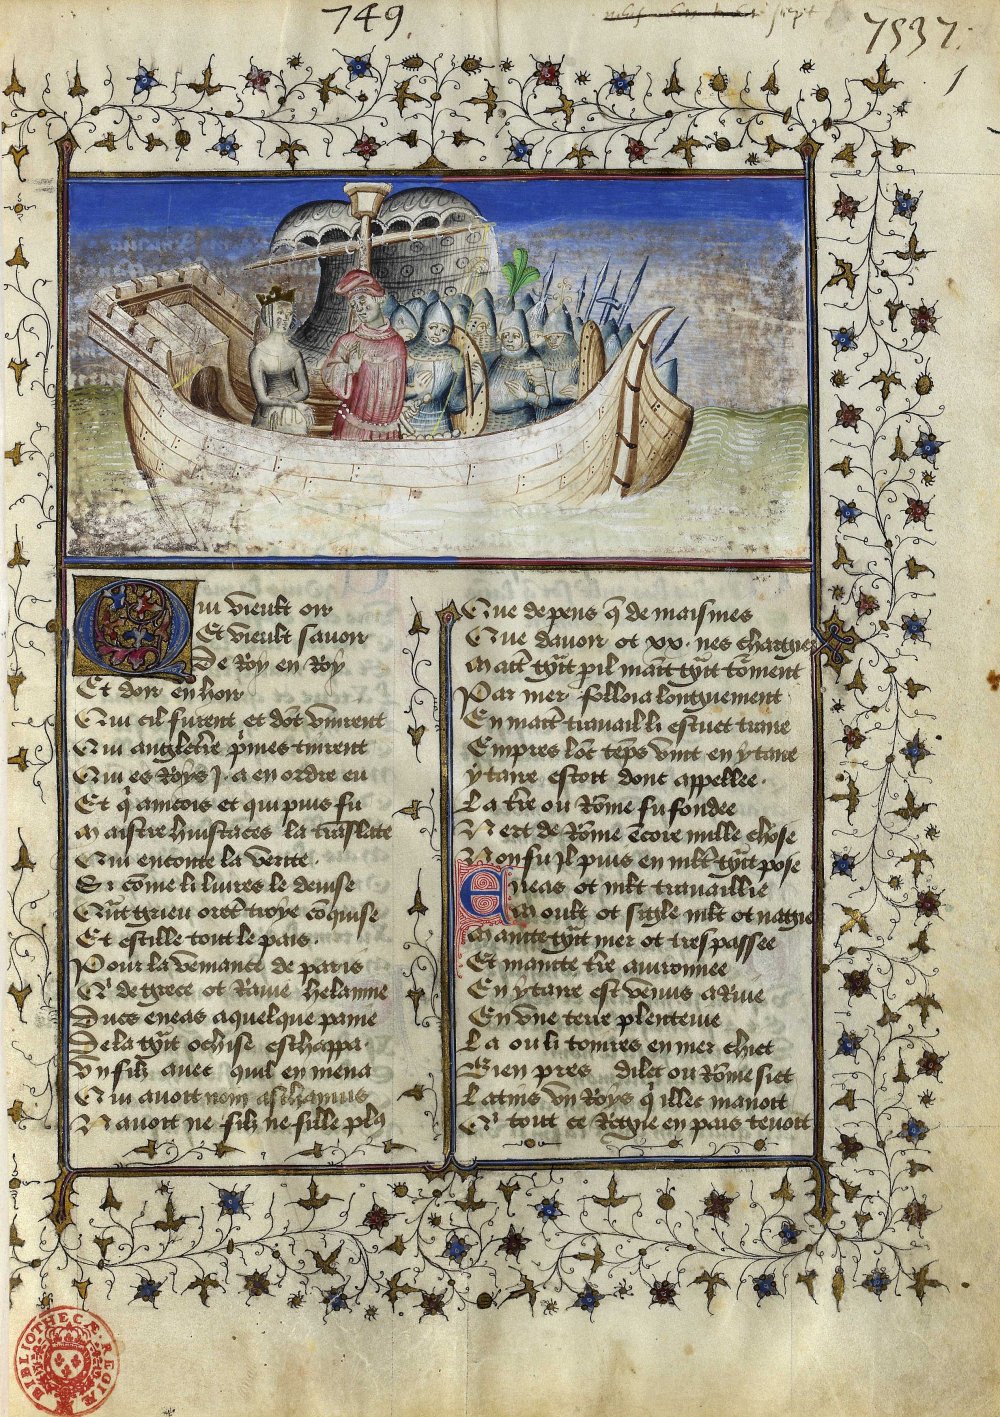 749.
7537.
1
Qui vieult oir
Et vieult savoir
De Roy en Roy
Et doir en hoir
Qui cil furent et dōt vinrent
Qui angletr̄e p̄mes tinrent
Qui es Roys J. a en ordre eu
Et q̄ aincois et qui puis fu
Maistre huistaces la translate
Qui enconte la verite.
Si cōme li livres le devise
Qūt grieu orēt troye cōquise
Et eſtille tout le pais.
Pour la vemance de paris
Q̄ de grece ot Ravie helainne
Ducs eneas a quelque paine
De la gūt ochise eschappa.
Un filz avec quil en mena
Qui avoit nom aschanius
N avoit ne filz ne fille pl9
Que de pens q̄ de maisnies
Que davoir ot xx. nes chargees
Maīt gūt pil maīt gūt tōrment
Par mer folloia longuement
En maīt travail li estuet traire
Empres lōc tēps vint en ytare
ytare estoit donc appellee.
La tr̄e ou Rōme fu fondee
N ert de Rōme ēcore nulle chose
Non fu Jl puis en mlt gūt pose
Eneas ot mlt travaillie
Moult ot sigle mlt ot nagie
Mainte gūt mer ot trespassee
Et mainte tr̄e avironnee
En ytare est venus a Rive
En vne terre plenteive
La ou li tomres en mer chiet
Bien pres dilec ou Rōme siet
Latins vn Roys q̄ illec manoit
Q̄ tout ce Regne en pais tenoit
BIBLIOTHECÆ REGIÆ